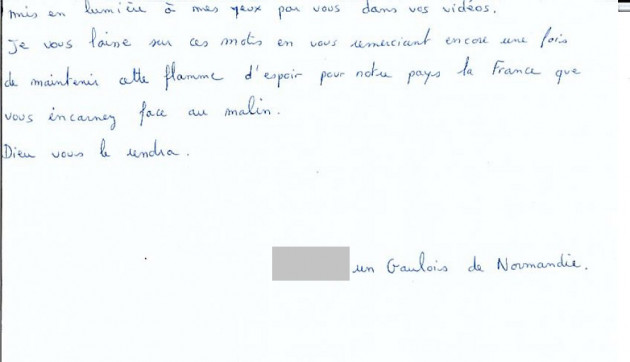 mis en lumière à mes yeux par vous dans vos vidéos.
Je vous laisse sur ces mots en vous remerciant encore une fois
de maintenir cette flamme d'espoir pour notre pays la France que
vous incarnez face au malin.
Dieu vous le rendra.
un Gaulois de Normandie.